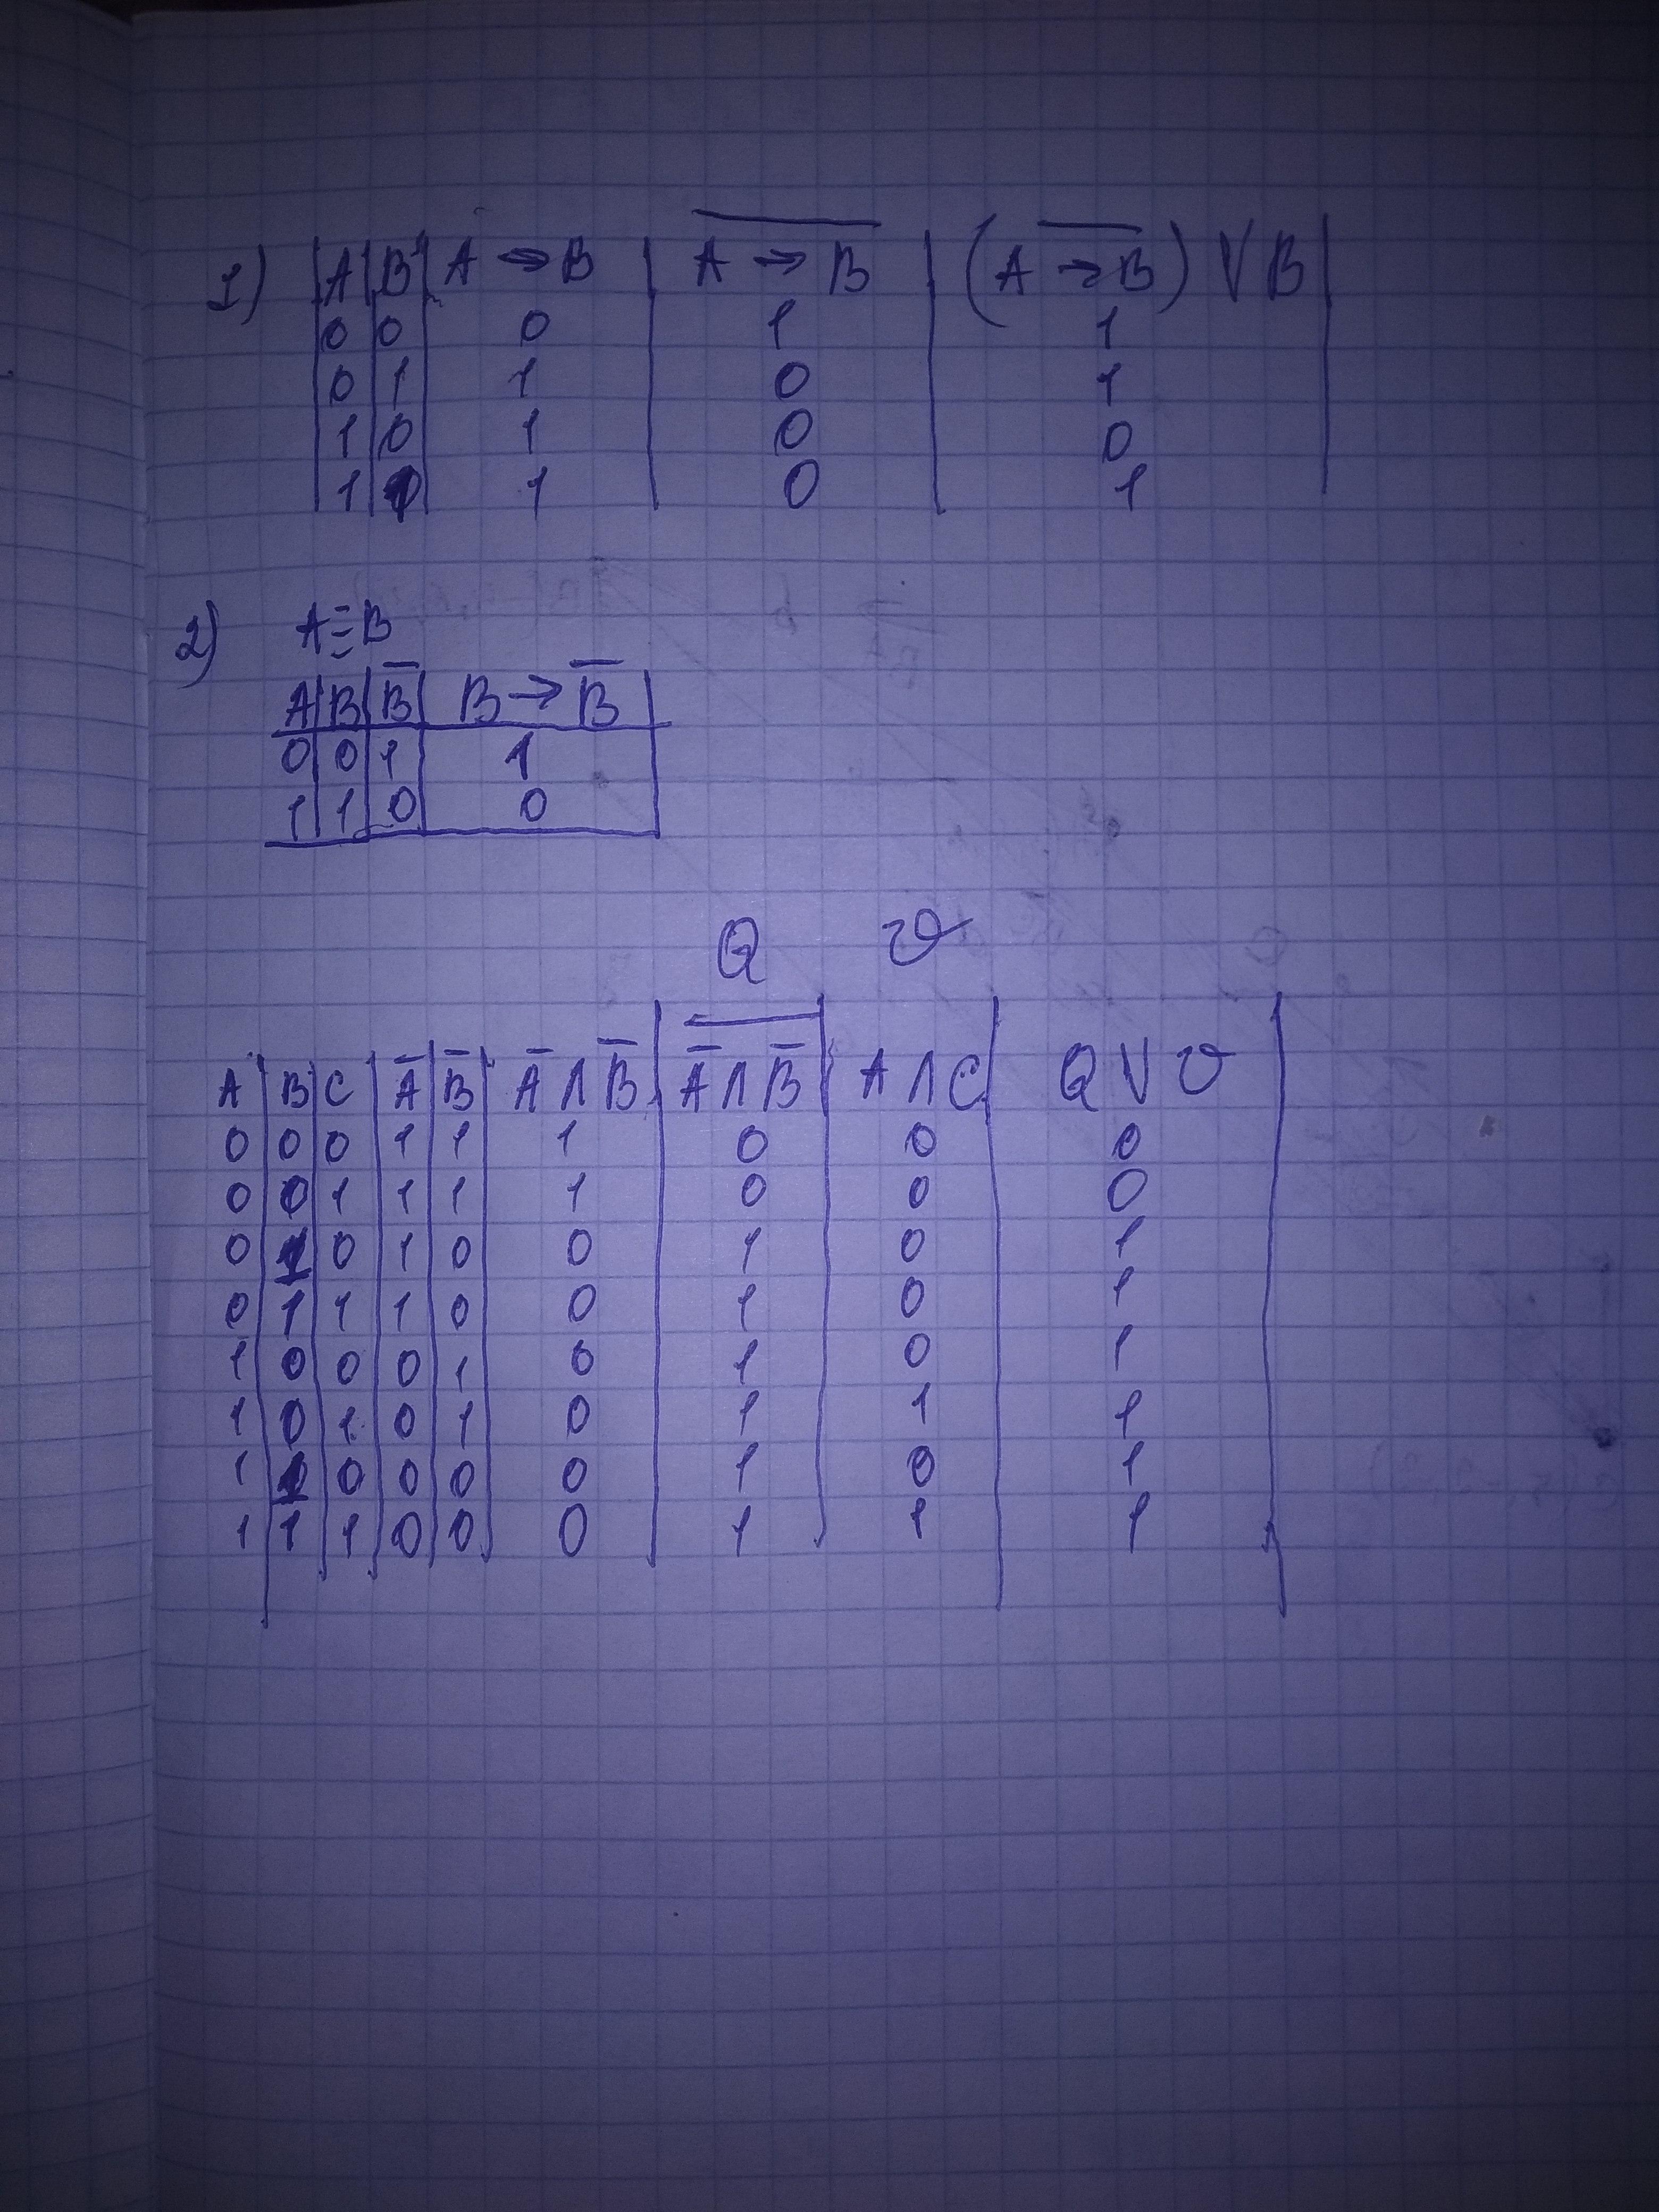 1) |A|B| A → B | A̅ ̅→̅ ̅B̅ | (A̅ ̅→̅ ̅B̅) V B |
0 0 0 1 1
0 1 1 0 1
1 0 1 0 0
1 1 1 0 1
2) A≡B
A|B|B̅| B → B̅ |
0 0 1 1
1 1 0 0
Q V
A|B|C|A̅|B̅|A̅ Λ B̅|A̅̅ ̅Λ̅ ̅B̅̅|A Λ C|Q V V|
0 0 0 1 1 1 0 0 0
0 0 1 1 1 1 0 0 0
0 1 0 1 0 0 1 0 1
0 1 1 1 0 0 1 0 1
1 0 0 0 1 0 1 0 1
1 0 1 0 1 0 1 1 1
1 1 0 0 0 0 1 0 1
1 1 1 0 0 0 1 1 1